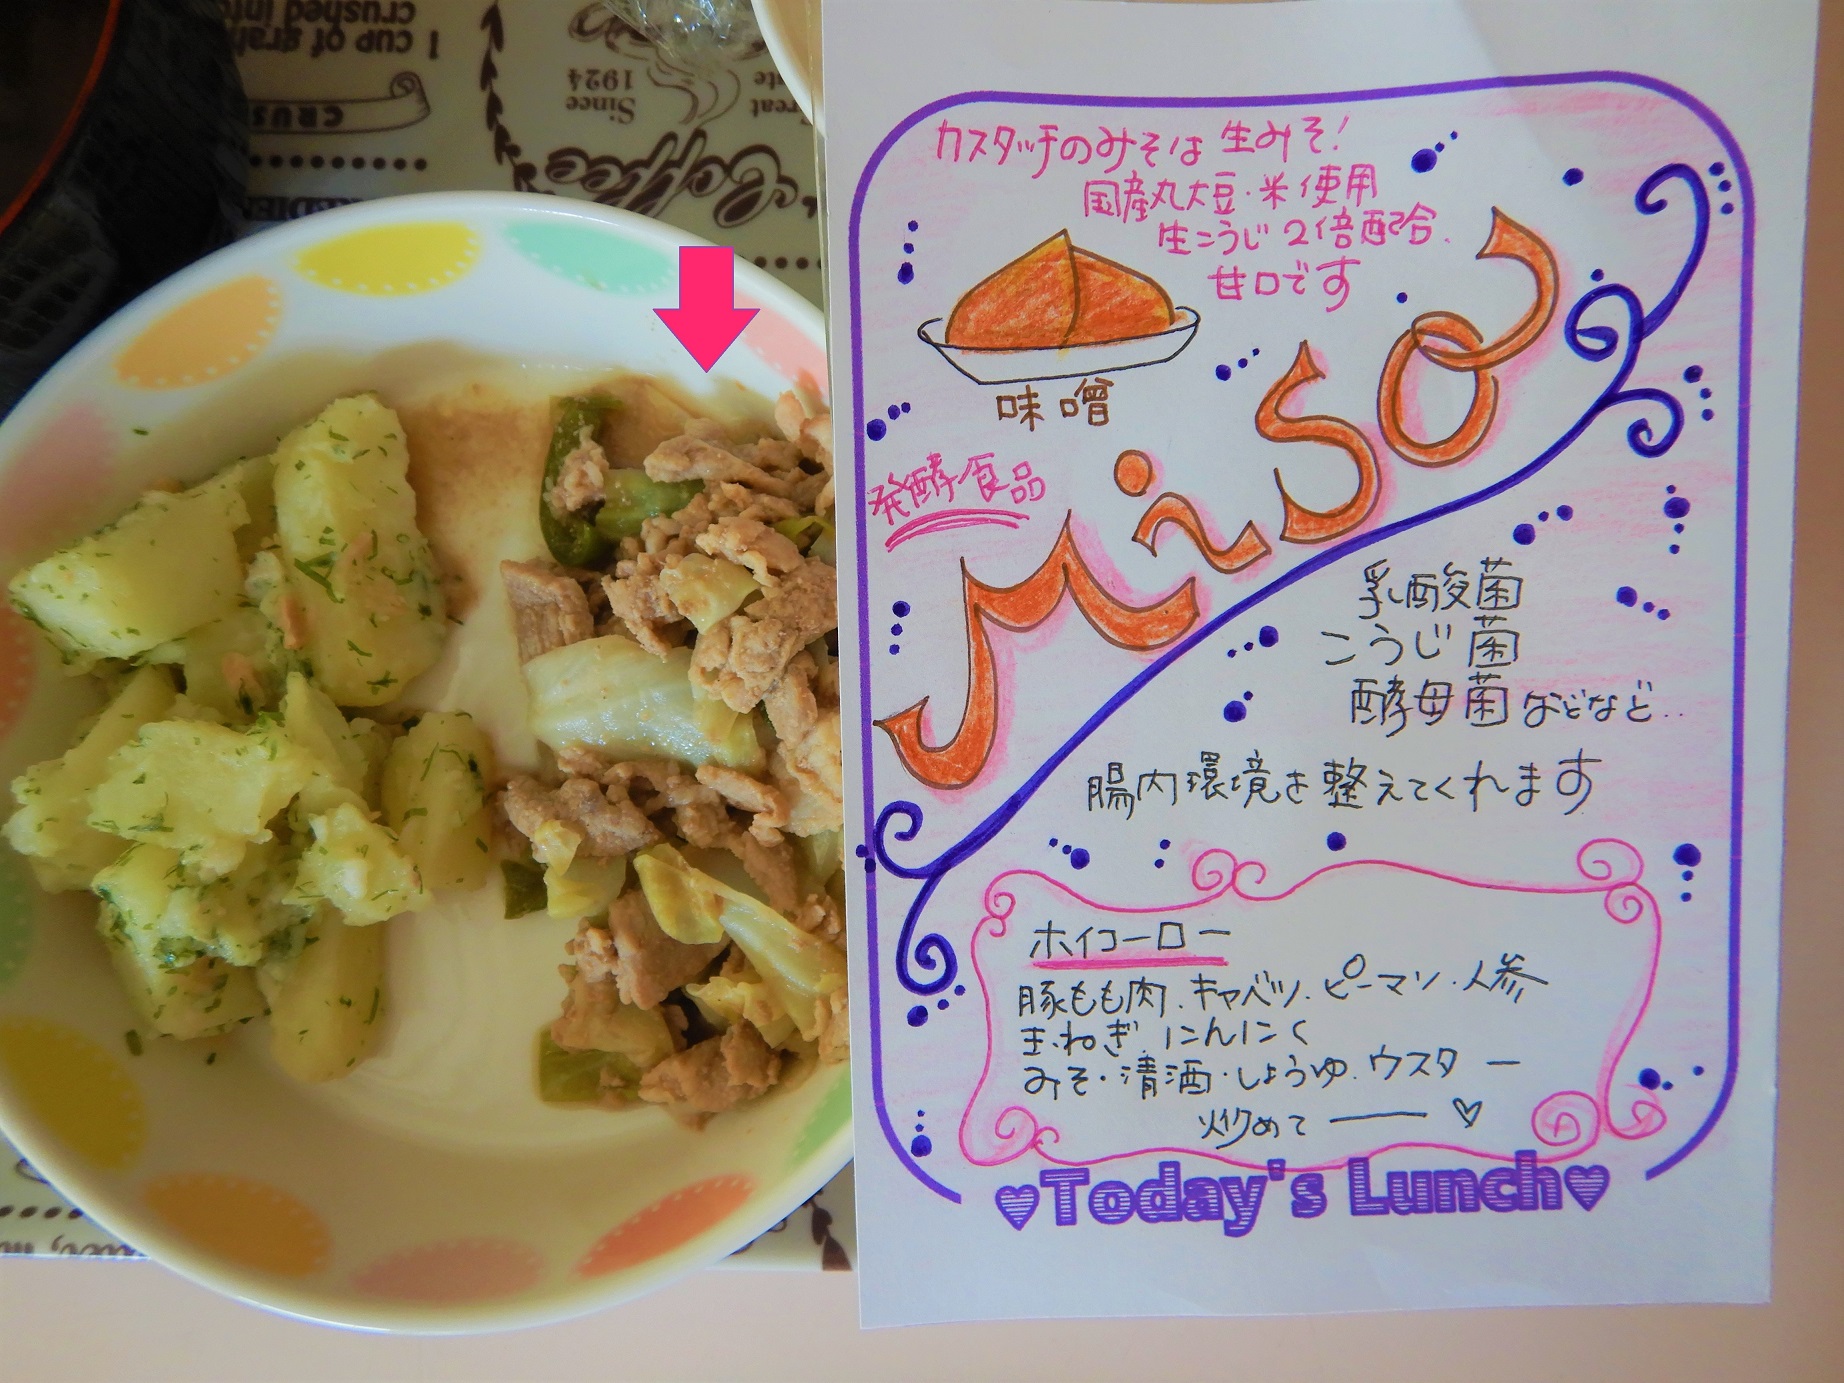 1 CUP OF
crushed into
CRUS
Since
1924
Coffee
カスタッチのみそは 生みそ!
国産丸大豆・米使用
生こうじ 2倍配合.
甘口です
味噌
発酵食品
Miso
乳酸菌
こうじ菌
酵母菌などなど..
腸内環境を整えてくれます
ホイコーロー
豚もも肉.キャベツ.ピーマン.人参
玉ねぎ.にんにく
みそ・清酒・しょうゆ.ウスター
炒めて ー ♡
♥Today's Lunch♥